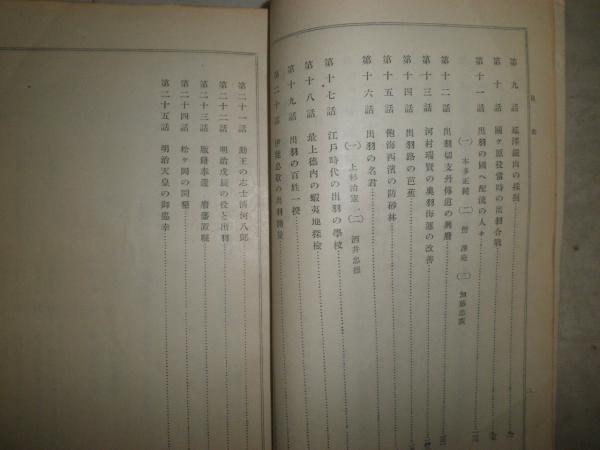 目次
第九話 延澤銀山の採掘
第十話 關ケ原役當時の出羽合戰
第十一話 出羽の國へ配流の人々
（一）本多正純（二）僧澤庵（三）加藤忠廣
第十二話 出羽切支丹傳道の興廢
第十三話 河村瑞賢の奧羽海運の改善
第十四話 出羽路の芭蕉
第十五話 飽海西濱の防砂林
第十六話 出羽の名君
（一）上杉治憲（二）酒井忠德
第十七話 江戸時代の出羽の學校
第十八話 最上德内の蝦夷地探檢
第十九話 出羽の百姓一揆
第二十話 伊能忠敬の出羽測量
第二十一話 勤王の志士淸河八郎
第二十二話 明治戊辰の役と出羽
第二十三話 版籍奉還 廢藩置縣
第二十四話 松ケ岡の開墾
第二十五話 明治天皇の御巡幸